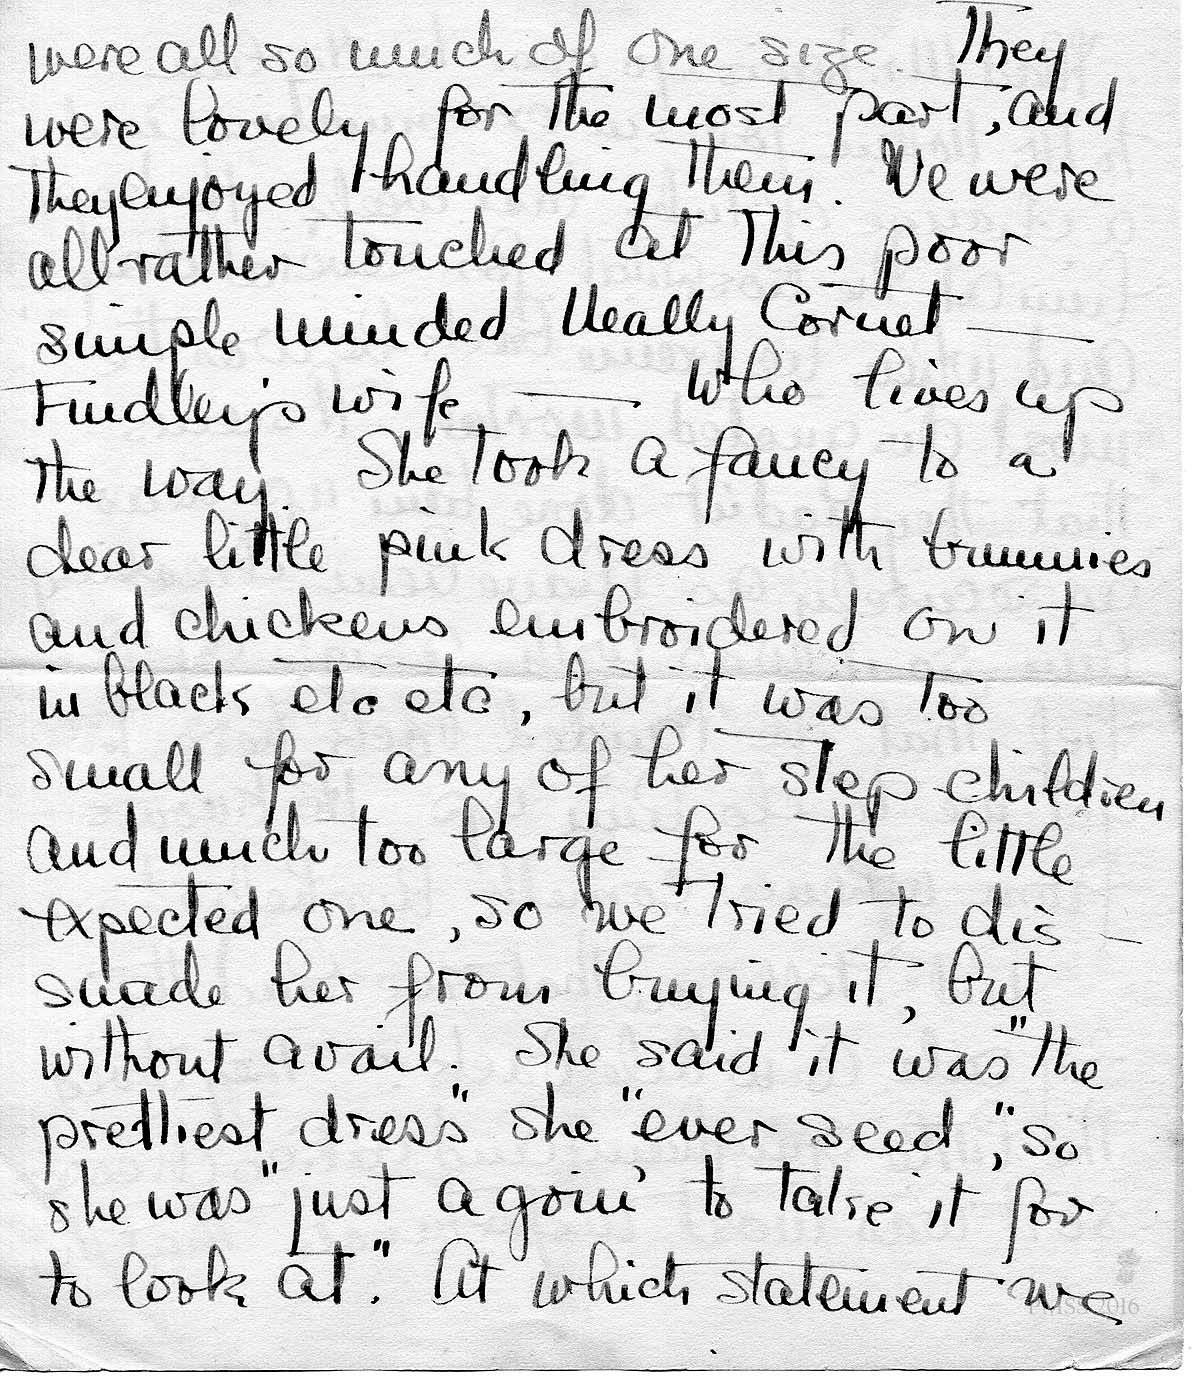 were all so much of one size. They
were lovely for the most part, and
they enjoyed handling them. We were
all rather touched at this poor
simple minded Neally Cornet —
Findley's wife — who lives up
the way. She took a fancy to a
dear little pink dress with bunnies
and chickens embroidered on it
in black etc etc, but it was too
small for any of her step children
and much too large for the little
expected one, so we tried to dis-
suade her from buying it, but
without avail. She said it was "the
prettiest dress" she "ever seed," so
she was "just agoin' to take it for
to look at." At which statement we
2016